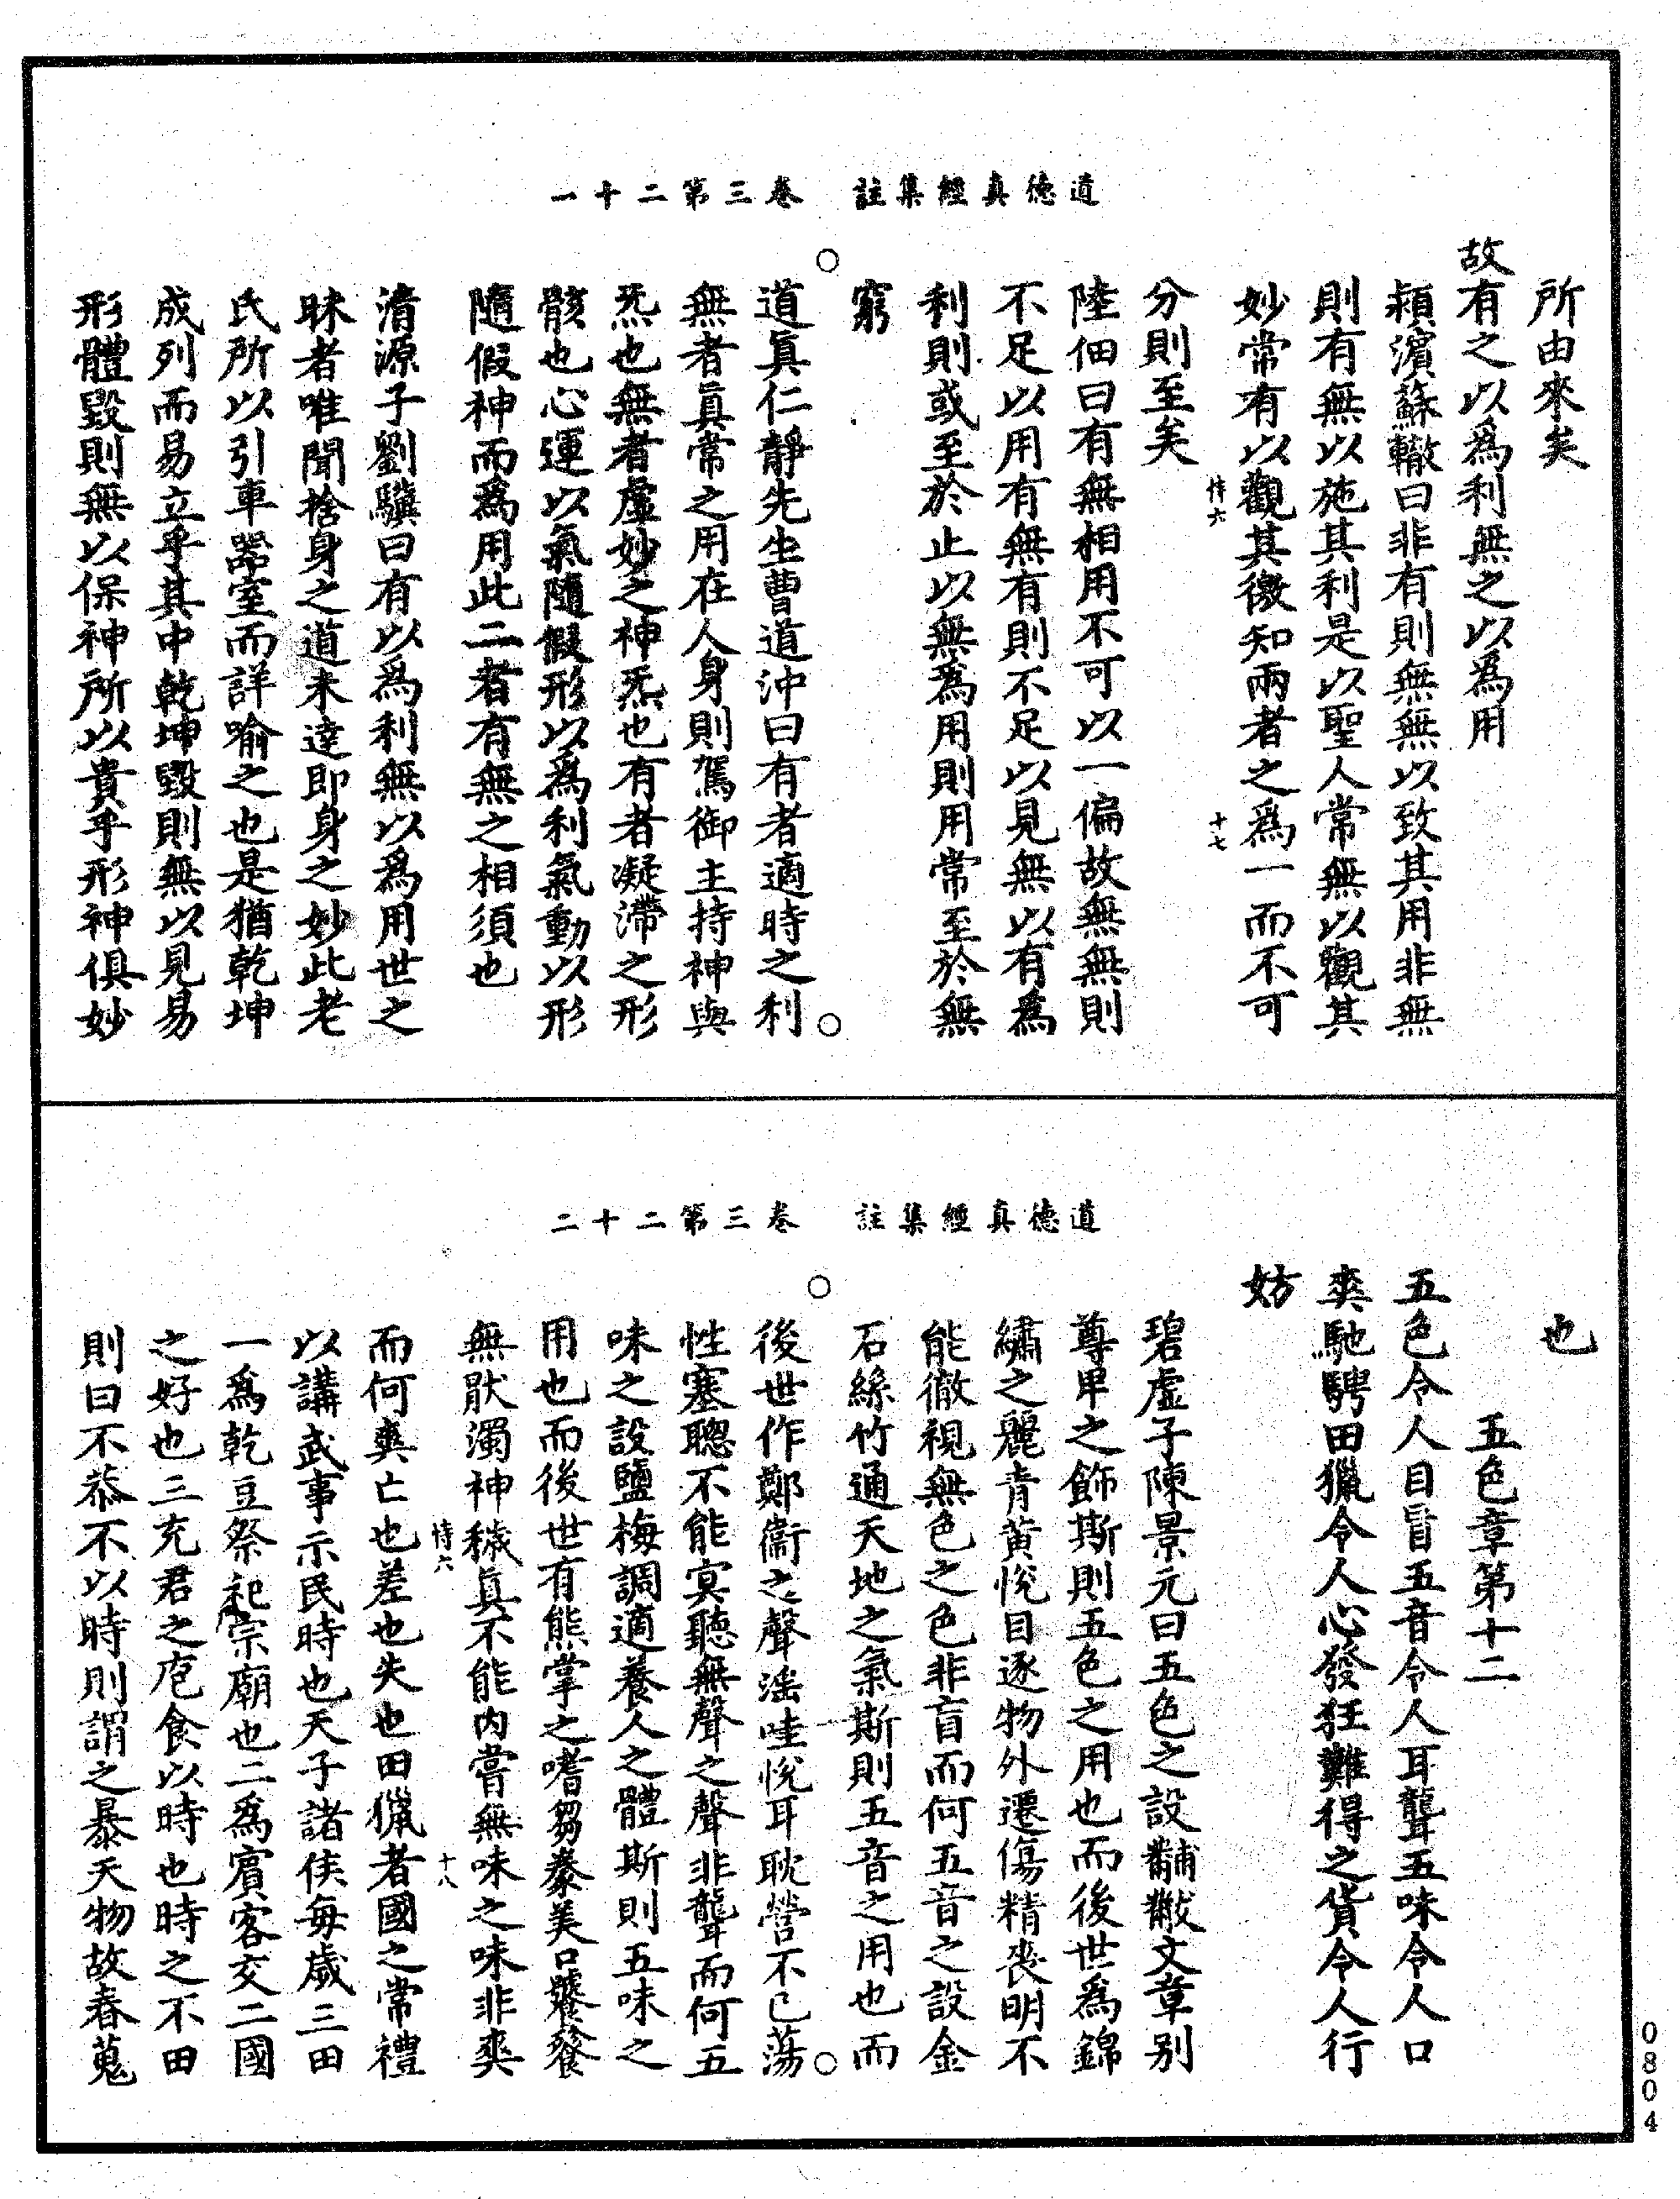 道德真經集註　卷三第二十一
所由來矣
故有之以爲利無之以爲用
潁濱蘇轍曰非有則無無以致其用非無
則有無以施其利是以聖人常無以觀其
妙常有以觀其徼知兩者之爲一而不可
恃六　十七
分則至矣
陸佃曰有無相用不可以一偏故無無則
不足以用有無有則不足以見無以有爲
利則或至於止以無爲用則用常至於無
窮
道真仁靜先生曹道沖曰有者適時之利
無者眞常之用在人身則駕御主持神與
炁也無者虛妙之神炁也有者凝滯之形
骸也心運以氣隨假形以爲利氣動以形
隨假神而爲用此二者有無之相須也
清源子劉驥曰有以爲利無以爲用世之
昧者唯聞捨身之道未達即身之妙此老
氏所以引車器室而詳喻之也是猶乾坤
成列而易立乎其中乾坤毀則無以見易
形體毀則無以保神所以貴乎形神俱妙
道德真經集註　卷三第二十二
也
五色章第十二
五色令人目盲五音令人耳聾五味令人口
爽馳騁田獵令人心發狂難得之貨令人行
妨
碧虛子陳景元曰五色之設黼黻文章别
尊卑之飾斯則五色之用也而後世爲錦
繡之麗青黃悅目逐物外遷傷精喪明不
能徹視無色之色非盲而何五音之設金
石絲竹通天地之氣斯則五音之用也而
後世作鄭衞之聲滛哇悅耳耽營不已蕩
性塞聰不能㝠聽無聲之聲非聾而何五
味之設鹽梅調適養人之體斯則五味之
用也而後世有熊掌之嗜芻豢美口饕餮
無猒濁神穢眞不能内嘗無味之味非爽
恃六　十八
而何爽亡也差也失也田獵者國之常禮
以講武事示民時也天子諸侯每歲三田
一爲乾豆祭祀宗廟也二爲賓客交二國
之好也三充君之庖食以時也時之不田
則曰不恭不以時則謂之暴天物故春蒐
0804